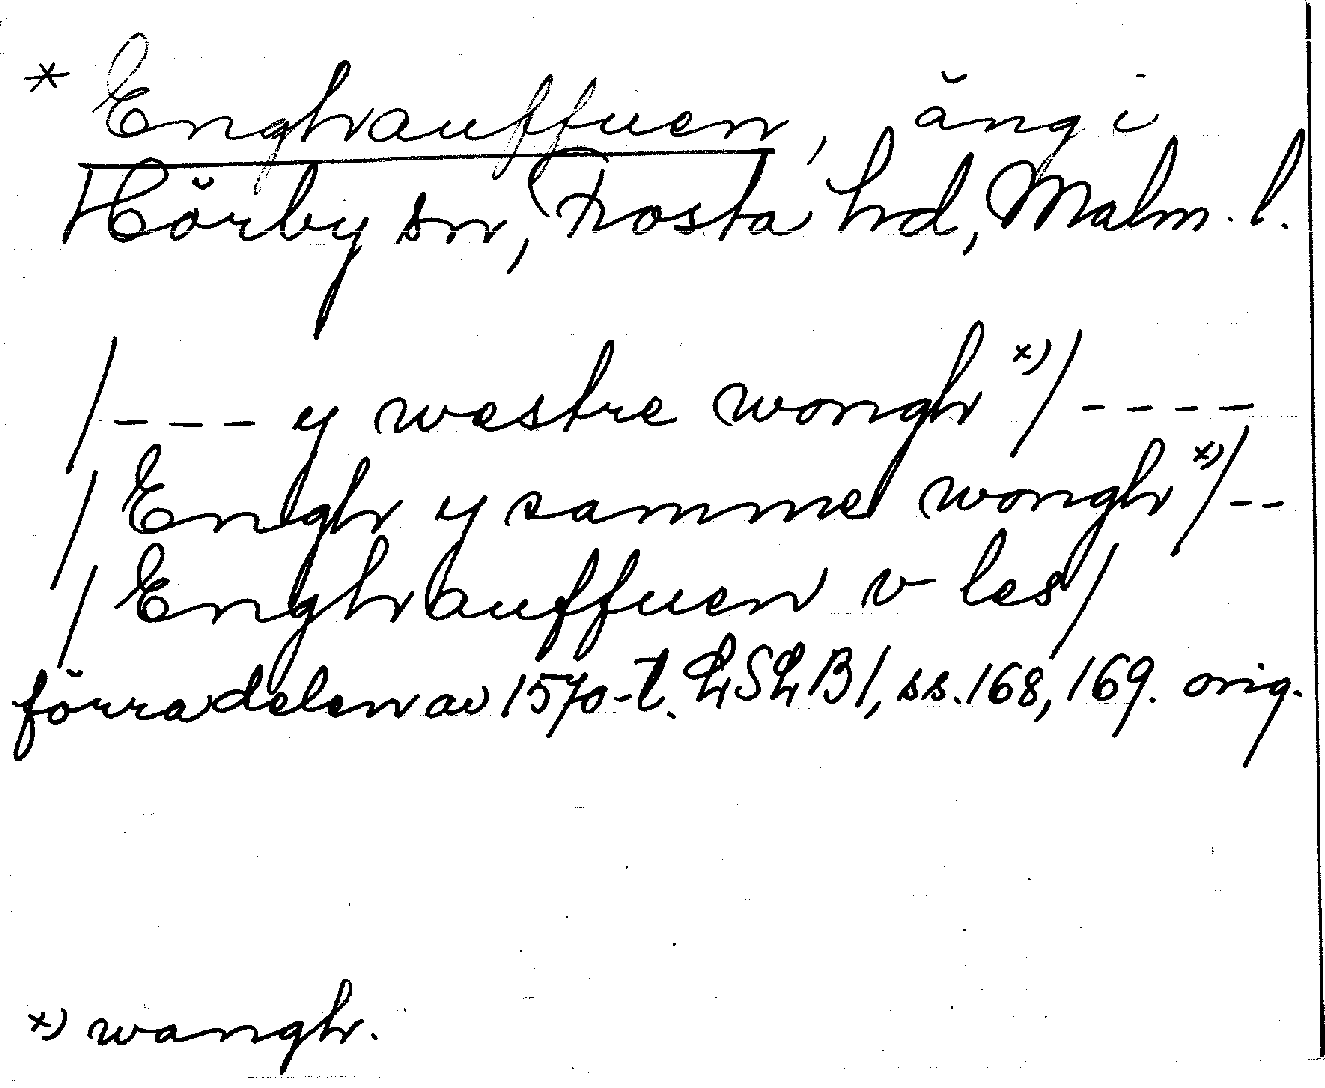 * Enghauffuen, äng i
Hörby sn, Frosta hd, Malm. l.
/ - - - y westre wongh x) / - - - -
/ Engh y samme wongh x) / - -
/ Enghauffuen v les /
förra delen av 1570-t. LSLB 1, ss. 168, 169. orig.
x) wangh.